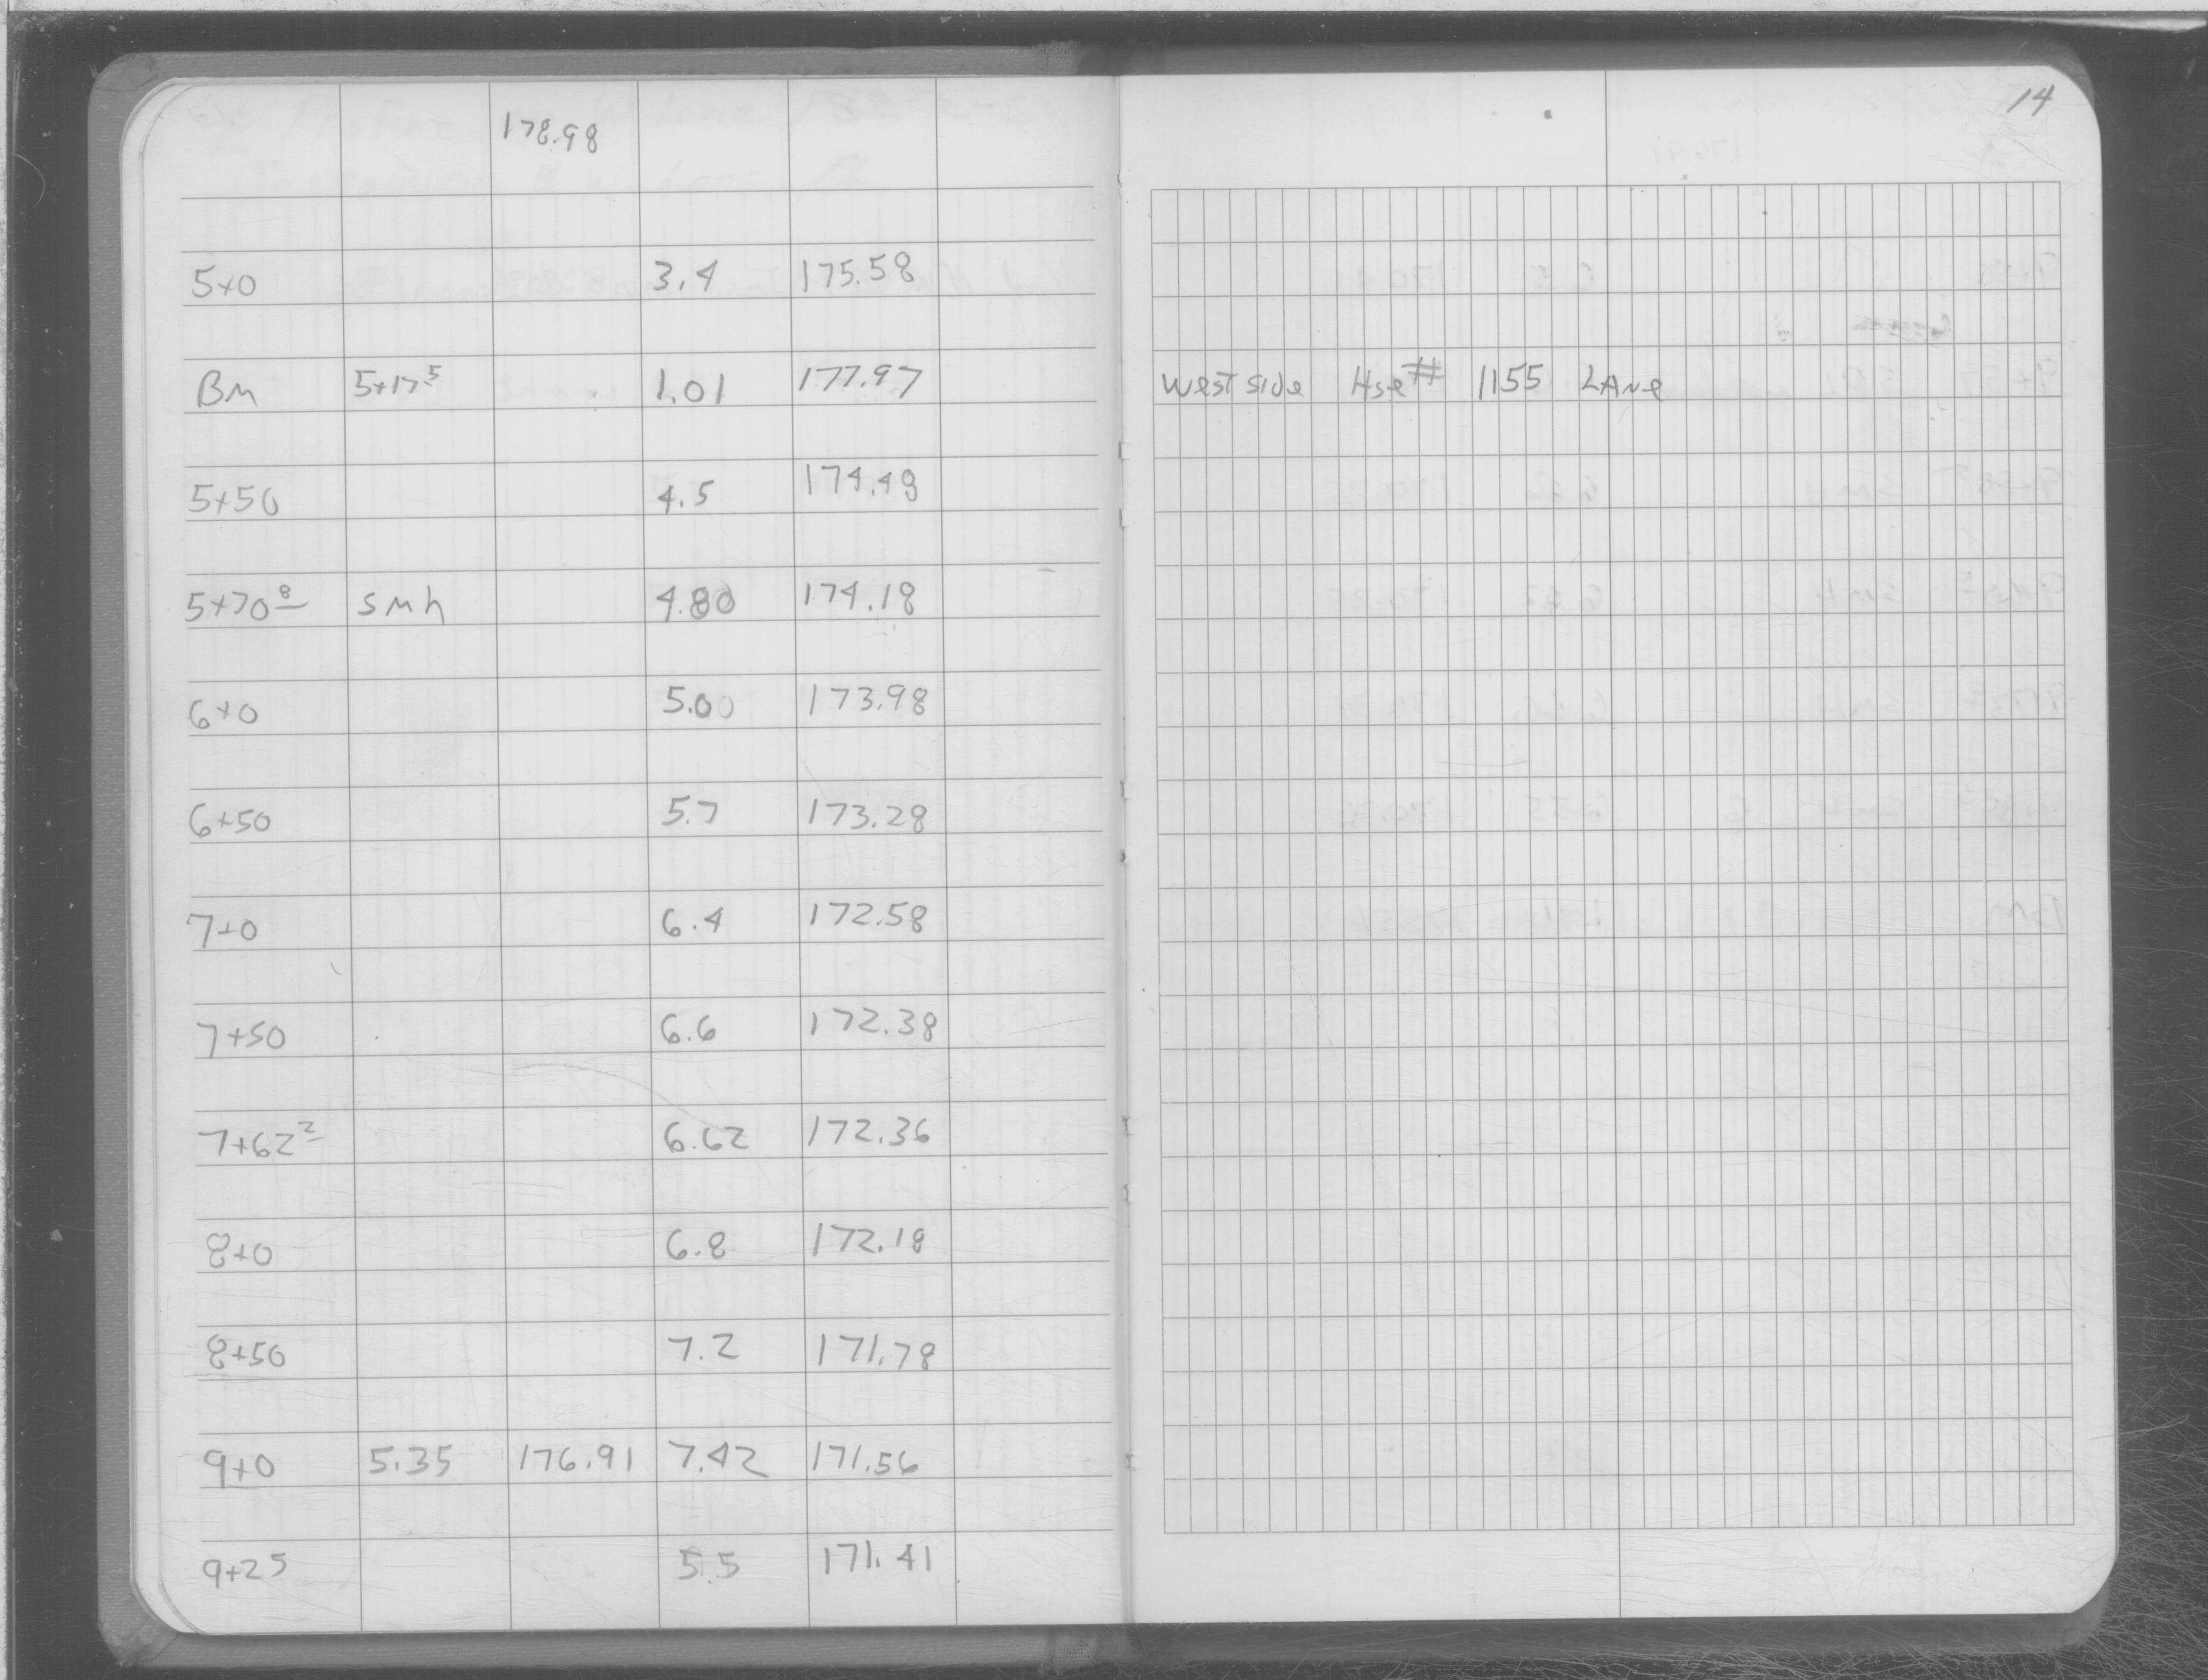 14
178.98
5+0 3.4 175.58
BM 5+17.5 1.01 177.97 West side Hse# 1155 LANe
5+50 4.5 174.48
5+70 8 SMh 4.80 174.18
6+0 5.00 173.98
6+50 5.7 173.28
7+0 6.4 172.58
7+50 6.6 172.38
7+62 2 6.62 172.36
8+0 6.8 172.18
8+50 7.2 171.78
9+0 5.35 176.91 7.42 171.56
9+25 5.5 171.41